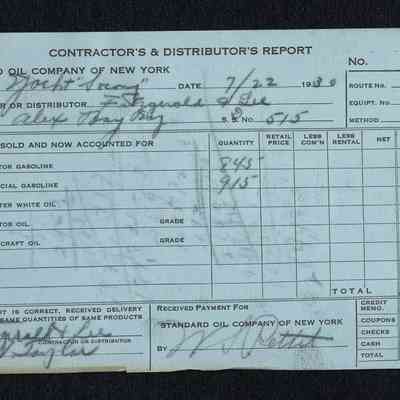 CONTRACTOR'S & DISTRIBUTOR'S REPORT
D OIL COMPANY OF NEW YORK
No.
Yacht "Socony" DATE 7/22 1930
ROUTE NO.
OR OR DISTRIBUTOR Fitzgerald & Lee
EQUIPT. NO.
Alex Bay S. S. No 515
METHOD
SOLD AND NOW ACCOUNTED FOR QUANTITY RETAIL PRICE LESS COM'N LESS RENTAL NET
TOR GASOLINE 845
CIAL GASOLINE 915
TER WHITE OIL
TOR OIL GRADE
CRAFT OIL GRADE
TOTAL
T IS CORRECT, RECEIVED DELIVERY
SAME QUANTITIES OF SAME PRODUCTS
CONTRACTOR OR DISTRIBUTOR
Taylor
RECEIVED PAYMENT FOR
STANDARD OIL COMPANY OF NEW YORK
BY
CREDIT MEMO.
COUPONS
CHECKS
CASH
TOTAL